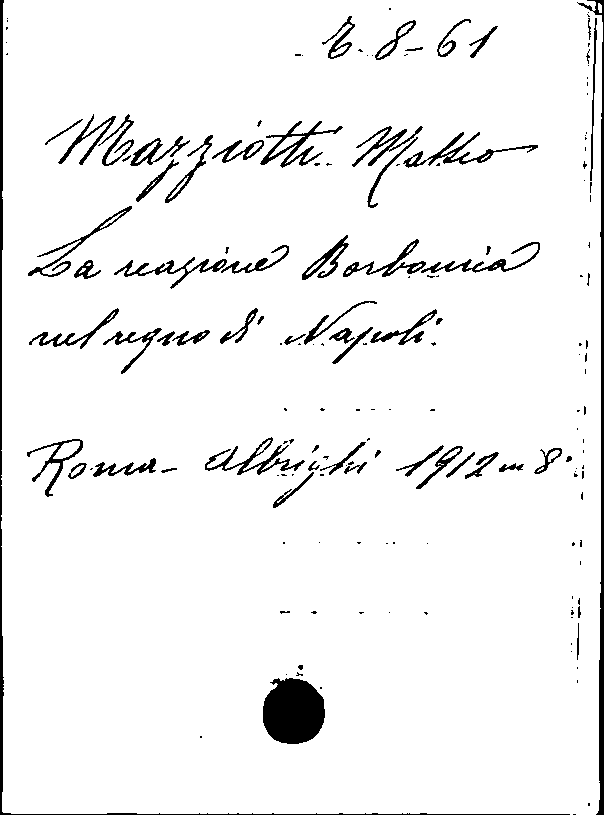 8-61
Mazziotti Matteo
La reazione Borbonica
nel regno di Napoli.
Roma - Albrighi 1912 in 8°